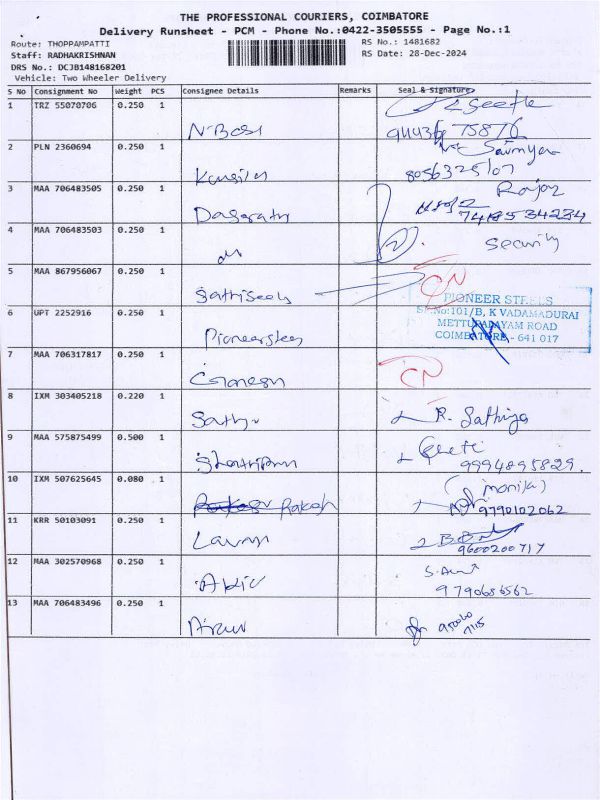 THE PROFESSIONAL COURIERS, COIMBATORE
Delivery Runsheet - PCM - Phone No.:0422-3505555 - Page No.:1
Route: THOPPAMPATTI
RS No.: 1481682
Staff: RADHAKRISHNAN
RS Date: 28-Dec-2024
DRS No.: DCJB148168201
Vehicle: Two Wheeler Delivery
S No Consignment No Weight PCS Consignee Details Remarks Seal & Signature
1 TRZ 55070706 0.250 1
Seetle
N.Bosi
2 PLN 2360694 0.250 1
Saumya
8056325107
3 MAA 706483505 0.250 1
Dasarath
7418534234
4 MAA 706483503 0.250 1
Security
5 MAA 867956067 0.250 1
CN
PIONEER STEELS
S.F.No:101/B, K VADAMADURAI
METTUPALAYAM ROAD
COIMBATORE - 641 017
6 UPT 2252916 0.250 1
Pioneerstees
7 MAA 706317817 0.250 1
CN
Ganesh
8 IXM 303405218 0.220 1
R. Sathiya
Sathy
9 MAA 575875499 0.500 1
9994895829
10 IXM 507625645 0.080 1
(monika)
Rakesh
9790102062
11 KRR 50103091 0.250 1
9600200717
12 MAA 302570968 0.250 1
9790686562
13 MAA 706483496 0.250 1
Arun